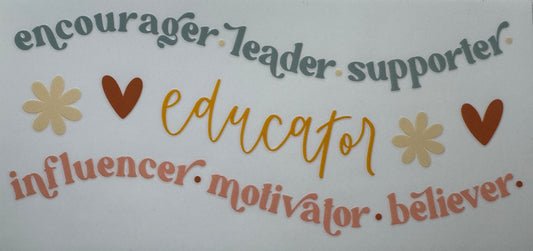 encourager·leader·supporter·
educator
influencer·motivator·believer·